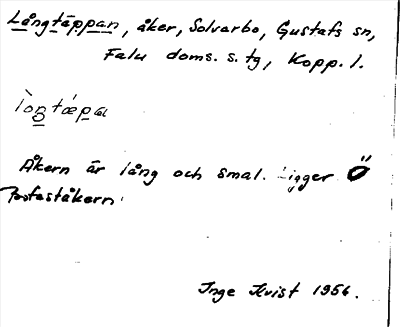 Långtäppan, åker, Solvarbo, Gustafs sn,
Falu doms. s. tg, Kopp. l.
Åkern är lång och smal. Ligger Ö
åkern.
Inge Kvist 1956.